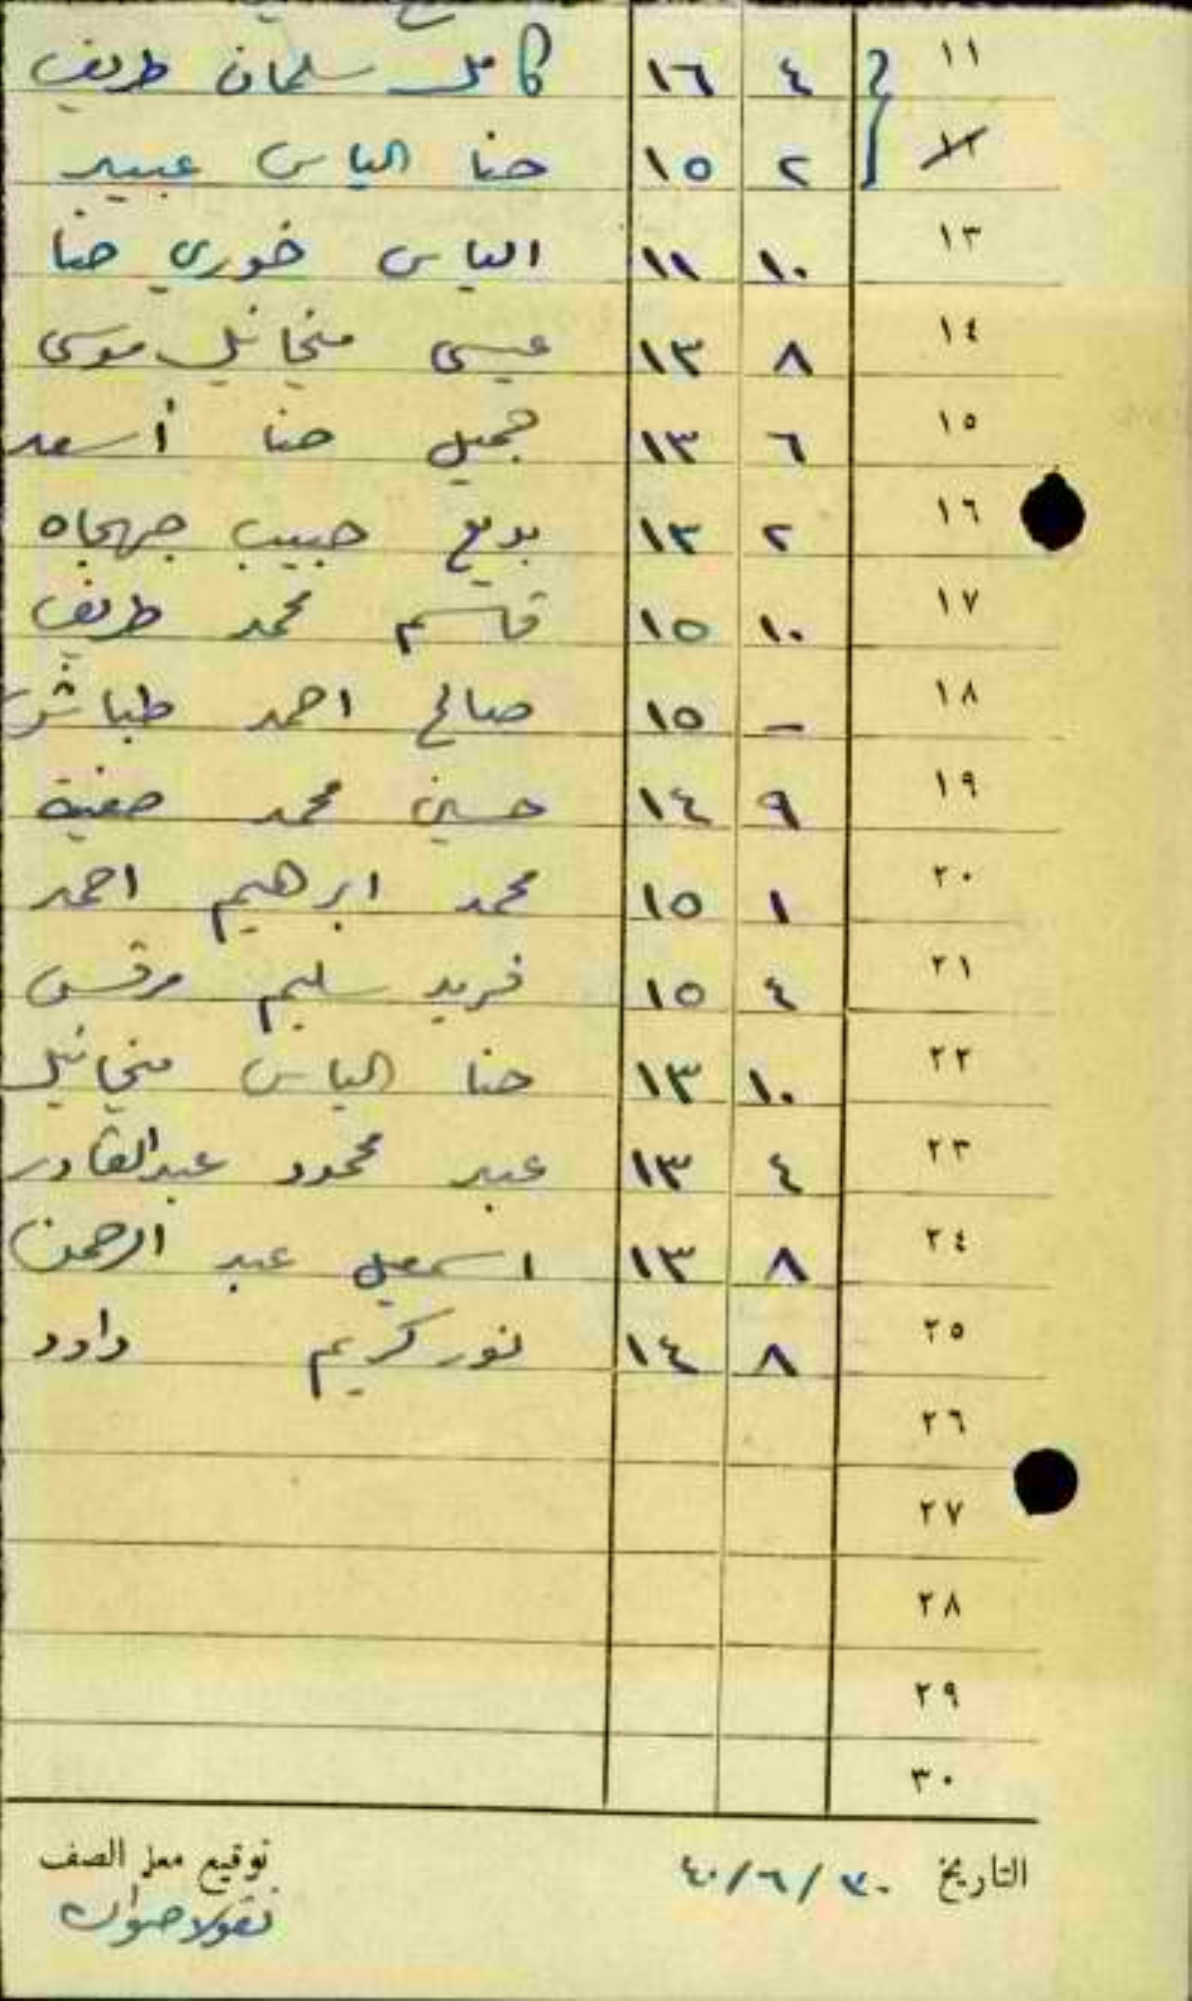 ١١ ٤ ١٦ كامل سلمان طريف
١٢ ٢ ١٥ حنا الياس عبيد
١٣ ١٠ ١١ الياس خوري حنا
١٤ ٨ ١٣ عيسى مخائيل موسى
١٥ ٦ ١٣ جميل حنا أسعد
١٦ ٢ ١٣ بديع حبيب جهجاه
١٧ ١٠ ١٥ قاسم محمد طريف
١٨ - ١٥ صالح احمد طباش
١٩ ٩ ١٤ حسين محمد صفية
٢٠ ١ ١٥ محمد ابرهيم احمد
٢١ ٤ ١٥ فريد سليم مرقس
٢٢ ١٠ ١٣ حنا الياس مخائيل
٢٣ ٤ ١٣ عبد محمود عبدالقادر
٢٤ ٨ ١٣ اسمعيل عبد الرحمن
٢٥ ٨ ١٤ نور كريم داود
٢٦
٢٧
٢٨
٢٩
٣٠
التاريخ ٣٠/٦/٤٠ توقيع معلم الصف
نقولا